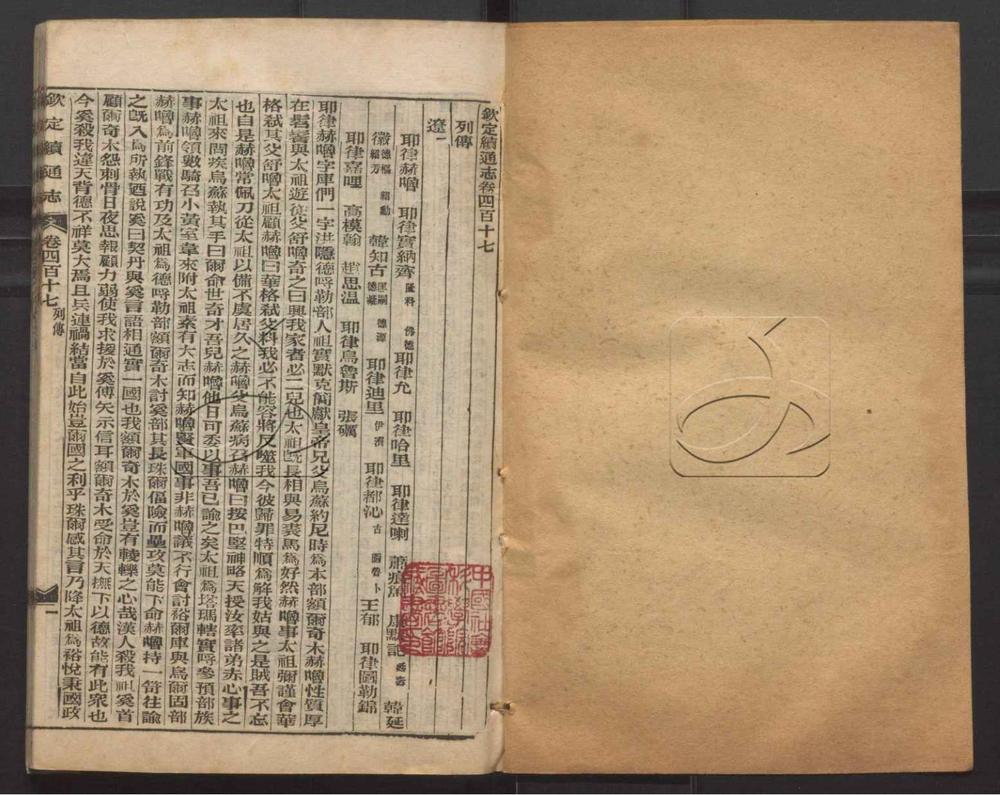 欽定續通志卷四百十七
列傳
遼一
耶律赫嚕 耶律實納齊 隆科 佛德 耶律允 耶律哈里 耶律達喇 蕭痕篤 康默記 延壽 韓延
徽 德樞 紹勳 紹芳 韓知古 匡嗣 德源 德凝 耶律迪里 伊濟 耶律都沁 古 王郁 耶律圖勒錦
耶律嘉哩 高模翰 趙思溫 耶律烏魯斯 張礪
耶律赫嚕字庫們一字洪隱德呼勒部人祖實默克簡獻皇帝兄父烏蘇約尼時為本部額爾奇木赫嚕性質厚
在髫鬌與太祖遊從父舒嚕奇之曰興我家者必二兒也太祖既長相與易裘馬為好然赫嚕事太祖彌謹會華
格弒其父舒嚕太祖顧赫嚕曰華格弒父料我必不能容將反噬我今彼歸罪特順為解我姑與之是賊吾不忘
也自是赫嚕常佩刀從太祖以備不虞居久之赫嚕父烏蘇病召赫嚕曰按巴堅神略天授汝率諸弟赤心事之
太祖來問疾烏蘇執其手曰爾命世奇才吾兒赫嚕他日可委以事吾已諭之矣太祖為塔瑪轄實呼參預部族
事赫嚕領數騎召小黃室韋來附太祖素有大志而知赫嚕賢軍國事非赫嚕議不行會討裕爾庫與烏爾固部
赫嚕為前鋒戰有功及太祖為德呼勒部額爾奇木討奚部其長珠爾偪險而壘攻莫能下命赫嚕持一笴往諭
之既入為所執迺說奚曰契丹與奚言語相通實一國也我額爾奇木於奚豈有輘轢之心哉漢人殺我祖奚首
額爾奇木怨刺骨日夜思報顧力弱使我求援於奚傅矢示信耳額爾奇木受命於天撫下以德故能有此眾也
今奚殺我違天背德不祥莫大焉且兵連禍結當自此始豈爾國之利乎珠爾感其言乃降太祖為裕悅秉國政
欽定續通志 卷四百十七 列傳 一
中國社會科學院圖書館藏書章